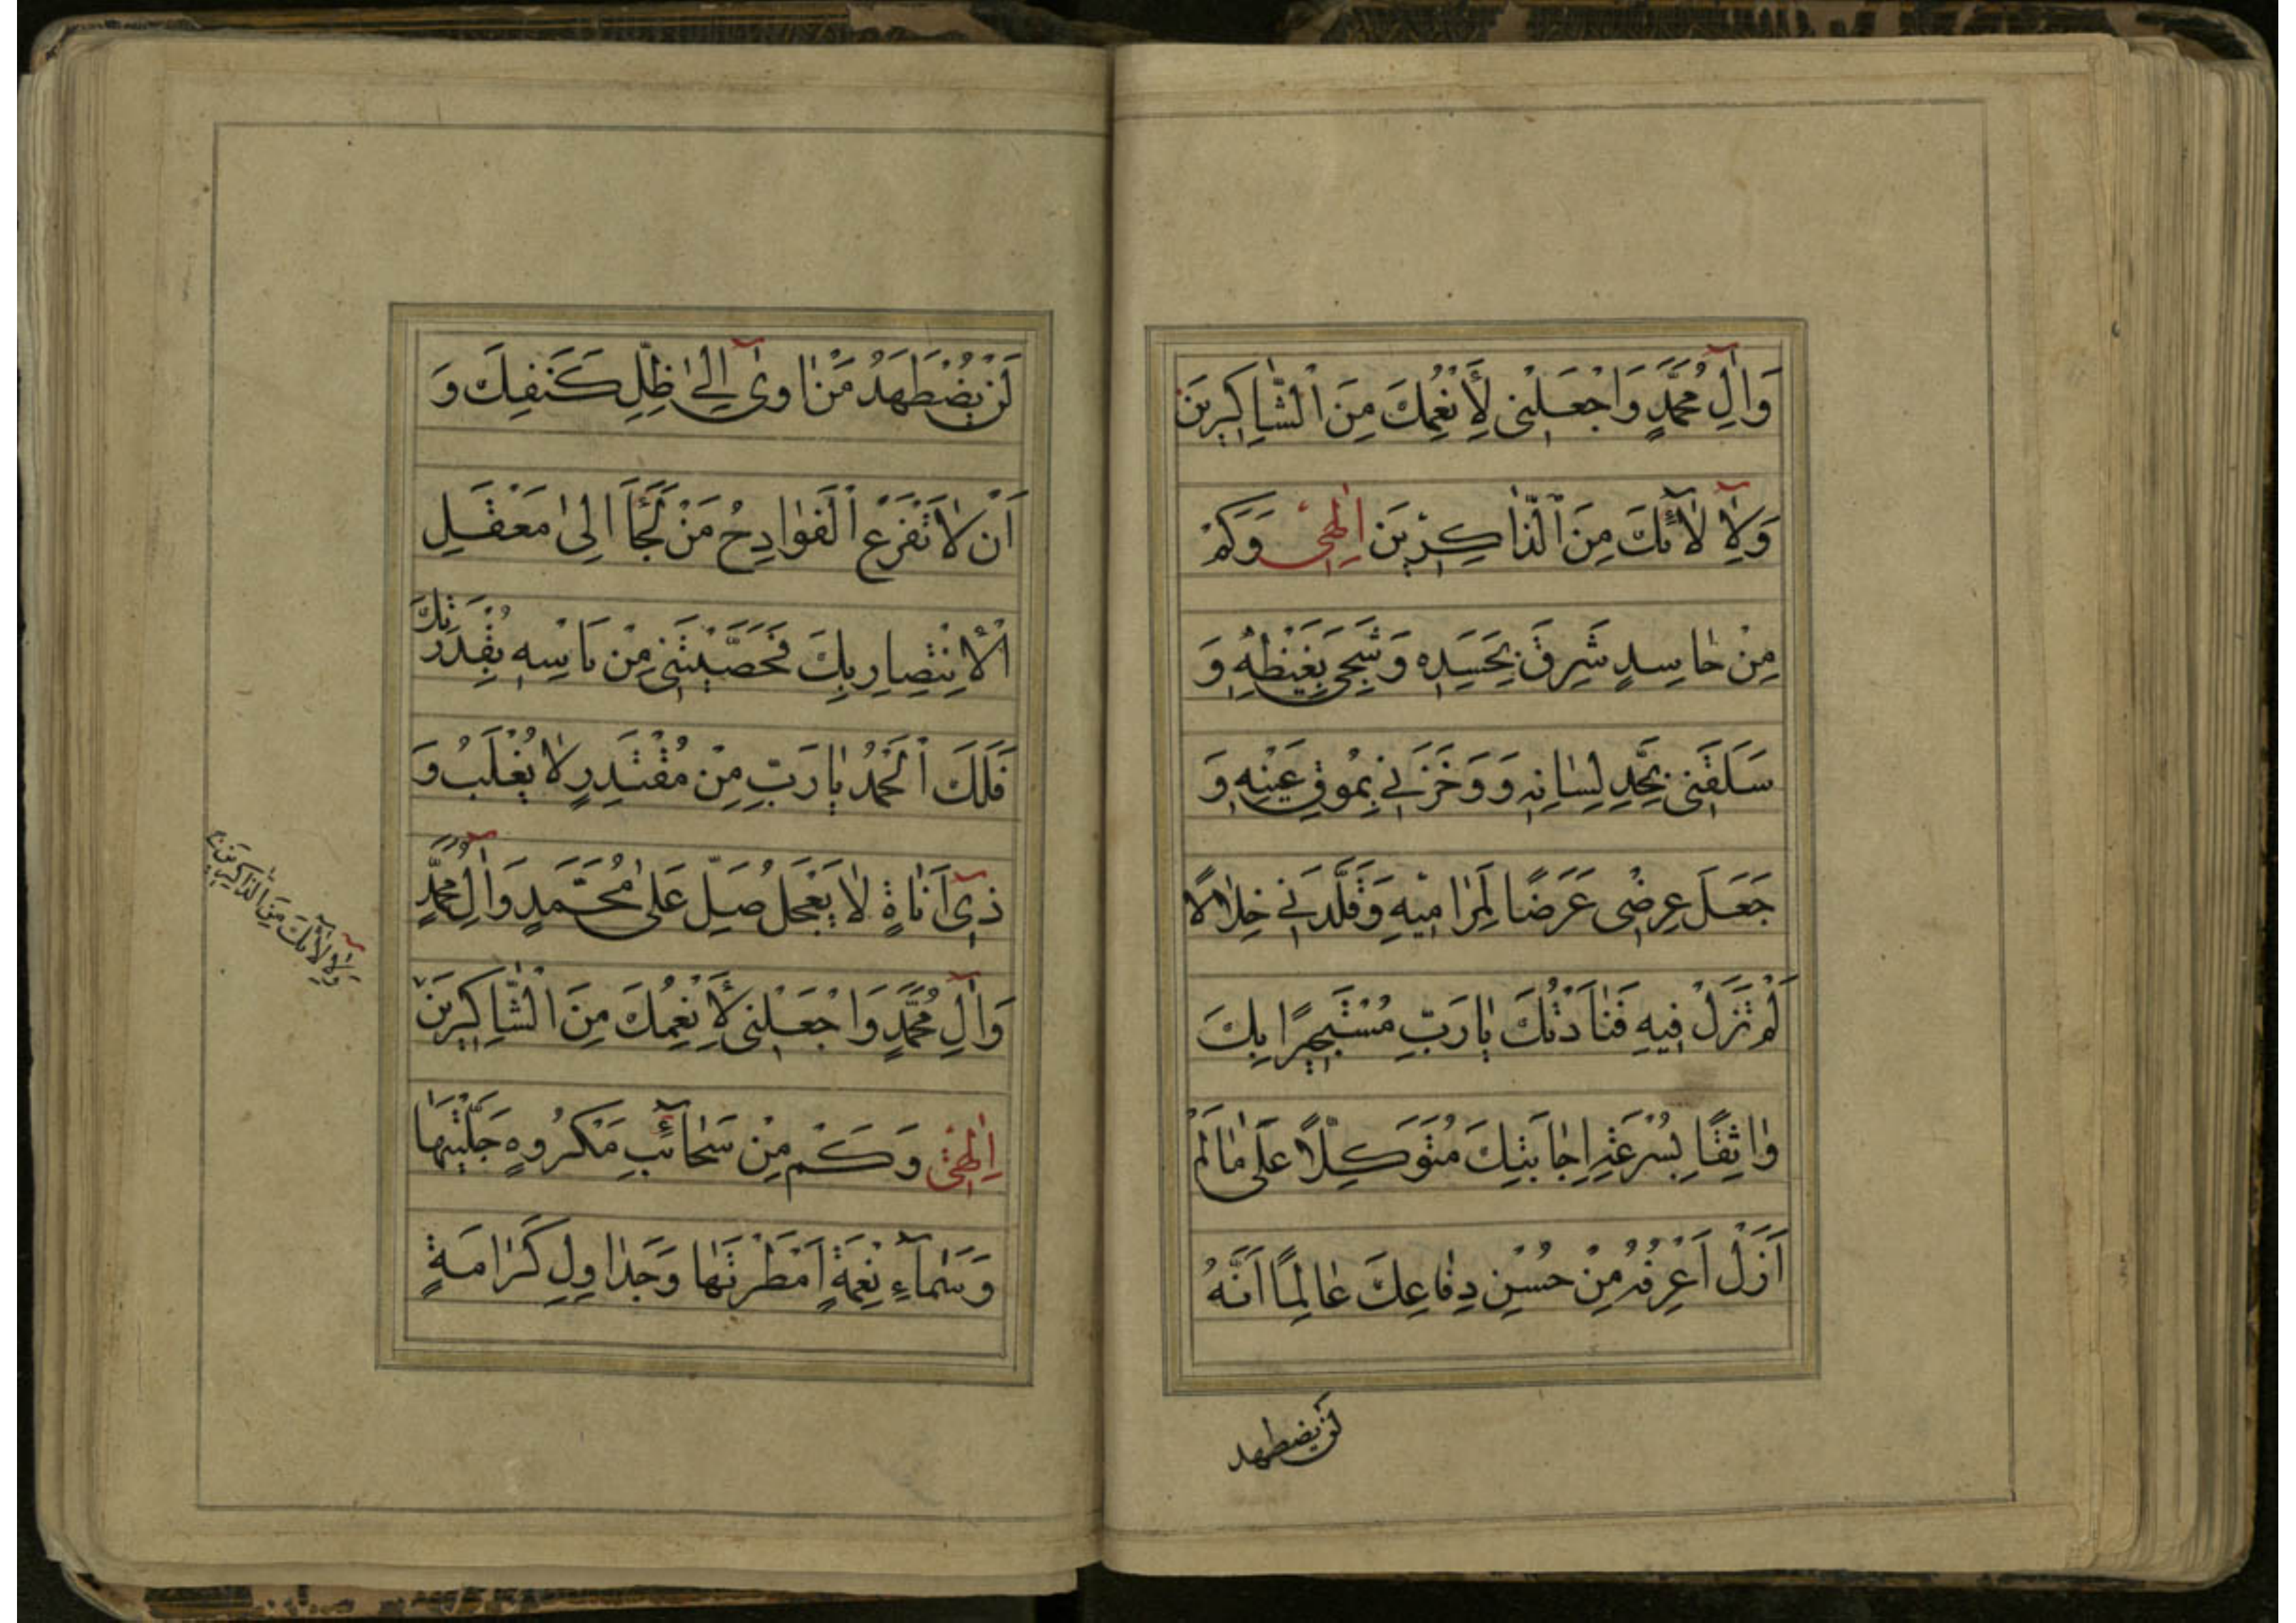 وَاٰلِ مُحَمَّدٍ وَاجْعَلْنِی لِأَنْعُمِكَ مِنَ الشَّاكِرِینَ
وَلِآلَائِكَ مِنَ الذَّاكِرِینَ اِلٰهِی وَكَمْ
مِنْ حَاسِدٍ شَرِقَ بِحَسَدِهِ وَشَجِیَ بِغَیْظِهِ وَ
سَلَقَنِی بِحَدِّ لِسَانِهِ وَوَخَزَنِی بِمُوقِ عَیْنِهِ وَ
جَعَلَ عِرْضِی غَرَضًا لِمَرَامِیهِ وَقَلَّدَنِی خِلَالًا
لَمْ تَزَلْ فِیهِ فَنَادَیْتُكَ یَا رَبِّ مُسْتَجِیرًا بِكَ
وَاثِقًا بِسُرْعَةِ اِجَابَتِكَ مُتَوَكِّلًا عَلَى مَا لَمْ
اَزَلْ اَعْرِفُهُ مِنْ حُسْنِ دِفَاعِكَ عَالِمًا اَنَّهُ
لن یضطهد
لَنْ یُضْطَهَدَ مَنْ اٰوىٰ اِلىٰ ظِلِّ كَنَفِكَ وَ
اَنْ لَا تَفْزَعَ الْفَوَادِحُ مَنْ لَجَأَ اِلىٰ مَعْقَلِ
الْاِنْتِصَارِ بِكَ فَحَصَّنْتَنِی مِنْ بَاْسِهِ بِقُدْرَتِكَ
فَلَكَ الْحَمْدُ یَا رَبِّ مِنْ مُقْتَدِرٍ لَا یُغْلَبُ وَ
ذِی اَنَاةٍ لَا یَعْجَلُ صَلِّ عَلىٰ مُحَمَّدٍ وَاٰلِ مُحَمَّدٍ
وَاٰلِ مُحَمَّدٍ وَاجْعَلْنِی لِأَنْعُمِكَ مِنَ الشَّاكِرِینَ
وَلِآلَائِكَ مِنَ الذَّاكِرِینَ
اِلٰهِی وَكَمْ مِنْ سَحَائِبِ مَكْرُوهٍ جَلَّیْتَهَا
وَسَمَاءِ نِعْمَةٍ اَمْطَرْتَهَا وَجَدَاوِلِ كَرَامَةٍ